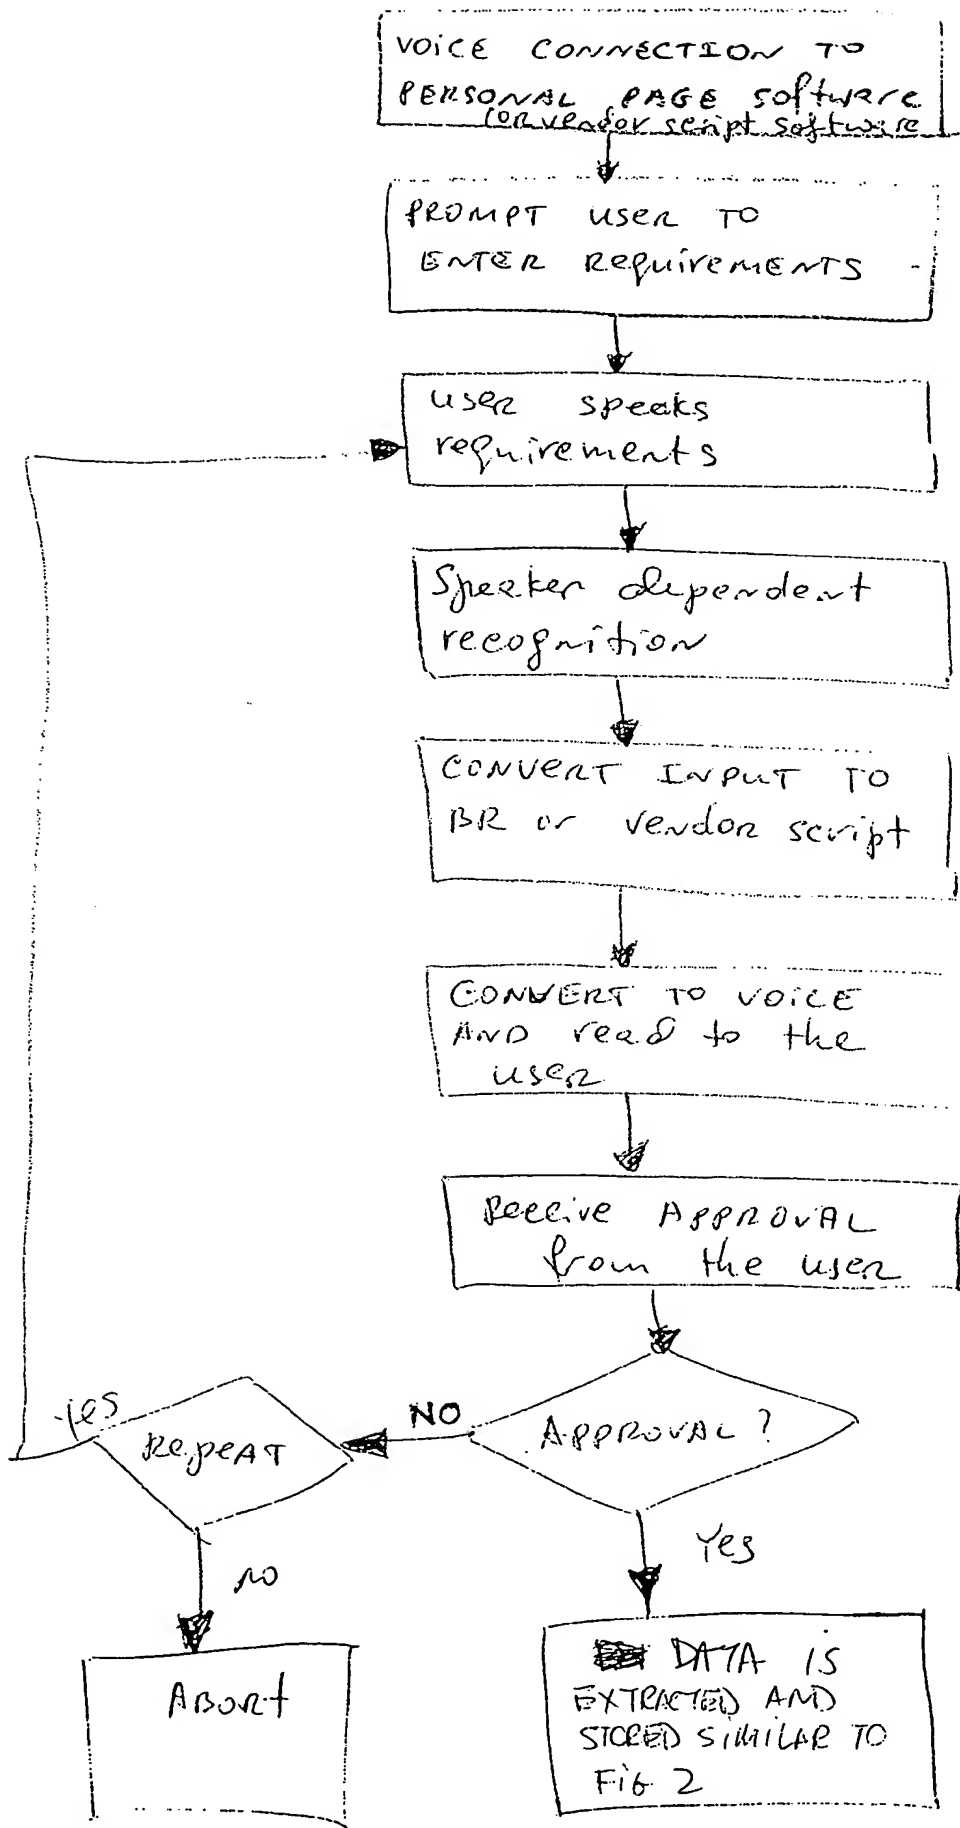 VOICE CONNECTION TO
PERSONAL PAGE software
(OR vendor script software
PROMPT USER TO
ENTER Requirements
user speaks
requirements
Speaker dependent
recognition
CONVERT INPUT TO
BR or vendor script
CONVERT TO VOICE
AND read to the
user
Receive APPROVAL
from the user
APPROVAL?
NO
Repeat
yes
NO
Yes
Abort
DATA IS
EXTRACTED AND
STORED SIMILAR TO
FIG 2